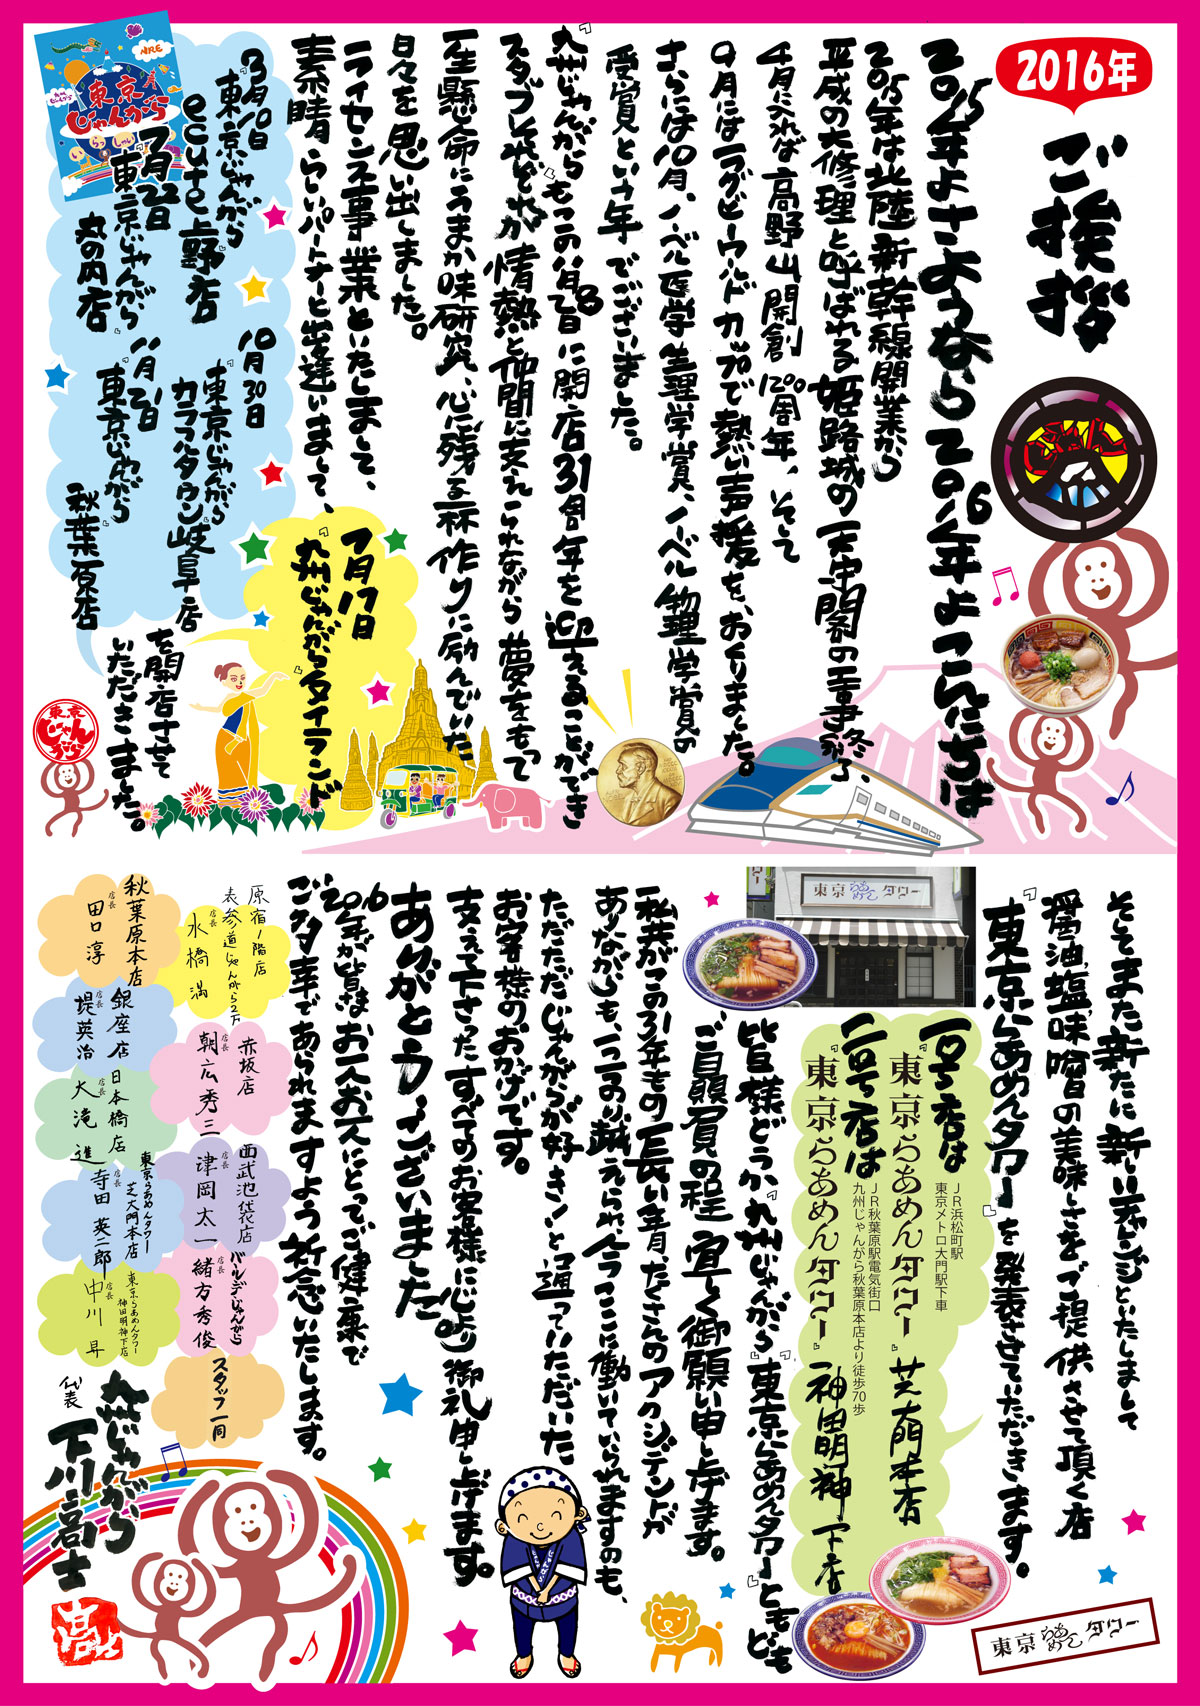 2016年
ご挨拶
2015年よさようなら2016年よこんにちは
2015年は北陸新幹線開業から
平成の大修理と呼ばれる姫路城の天守閣の工事終了、
4月に入れば高野山開創1200周年、そして
9月にはラグビーワールドカップで熱い声援を、おくりました。
さらには10月、ノーベル医学生理学賞、ノーベル物理学賞の
受賞という年でございました。
『九州じゃんがら』もこの8月2日に開店31周年を迎えることができ
スタッフそれぞれが情熱と仲間に支えられながら夢をもって
一生懸命にうまか味研究、心に残る一杯作りに励んでいた
日々を思い出しました。
ライセンス事業といたしまして、
素晴らしいパートナーと出逢いまして、
7月17日
『九州じゃんがら』タイランド
3月10日
『東京じゃんがら』
ecute上野店
7月22日
『東京じゃんがら』
丸の内店
10月30日
『東京じゃんがら』
カラフルタウン岐阜店
11月21日
『東京じゃんがら』
秋葉原店
を開店させて
いただきました。
NRE
東京
じゃんがら
いらっしゃーい
東京
じゃんがら
じゃんがら
そしてまた新たに新しいチャレンジといたしまして
醤油、塩、味噌の美味しさをご提供させて頂く店
『東京らあめんタワー』を発表させていただきます。
一号店は
JR浜松町駅
東京メトロ大門駅下車
『東京らあめんタワー』芝大門本店
二号店は
JR秋葉原駅電気街口
九州じゃんがら秋葉原本店より徒歩70歩
『東京らあめんタワー』神田明神下店
皆様どうか『九州じゃんがら』『東京らあめんタワー』ともども
ご贔屓の程宜しく御願い申し上げます。
私共がこの31年もの長い年月、たくさんのアクシデントが
ありながらも、一つ一つのり越えられ、今ここに働いていられますのも、
ただただ「じゃんがらが好き!」と通っていただいた
お客様のおかげです。
支えて下さったすべてのお客様に心より御礼申し上げます。
ありがとうございました。
2016年が皆さまお一人お一人にとってご健康で
ご多幸であられますよう祈念いたします。
東京らあめんタワー
原宿1階店
表参道じゃんがら2万
店長
水橋 満
赤坂店
店長
朝広秀三
西武池袋店
店長
津岡太一
店長
緒方秀俊
スタッフ一同
秋葉原本店
店長
田口淳
銀座店
店長
堤英治
日本橋店
店長
大滝 進
東京らあめんタワー
芝大門本店
店長
寺田英二郎
東京らあめんタワー
神田明神下店
店長
中川 昇
九州じゃんがら
代表
下川高士
東京らあめんタワー